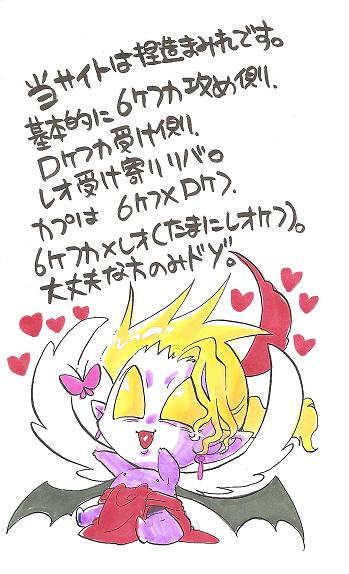 当サイトは捏造まみれです。
基本的に6ケフカ攻め側、
Dケフカ受け側、
レオ受け寄りリバ。
カプは 6ケフ×Dケフ、
6ケフカ×レオ(たまにレオケフ)。
大丈夫な方のみドゾ。